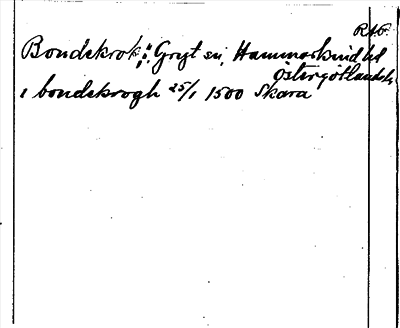 RAP.
Bondskrok, ö, Gryt sn, Hammarkind hd
Östergötlands l.
i bondskrogh 25/1 1500 Skara